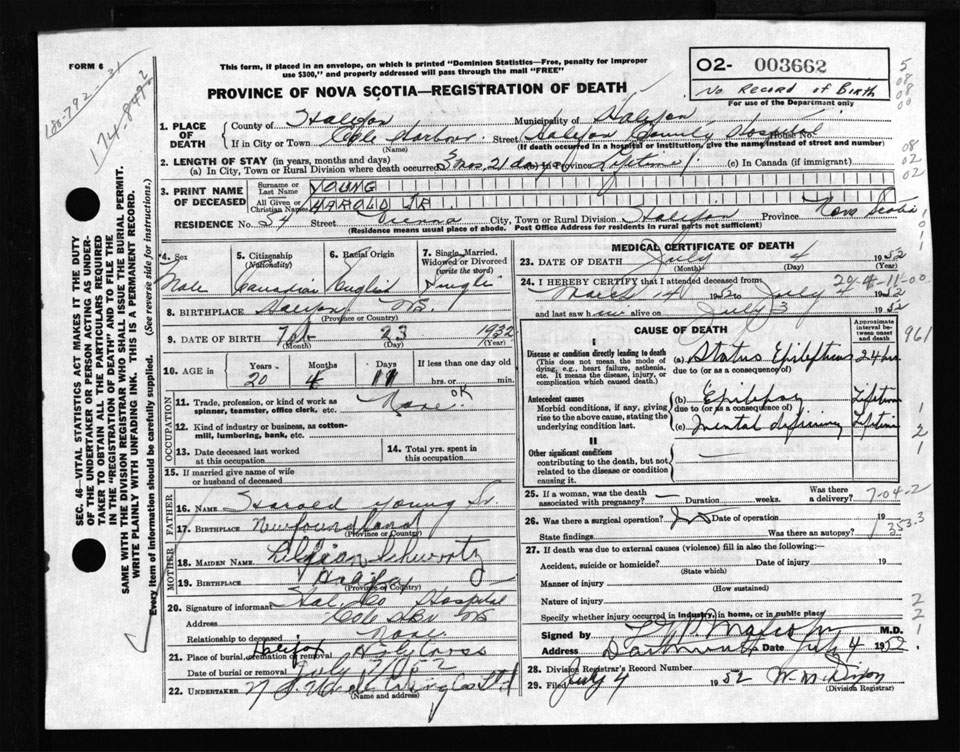 FORM 6
180-792-31
174-8492
This form, if placed in an envelope, on which is printed "Dominion Statistics—Free, penalty for improper
use $300," and properly addressed will pass through the mail "FREE"
PROVINCE OF NOVA SCOTIA—REGISTRATION OF DEATH
02- 003662
No Record of Birth
For use of the Department only
5
08
08
00
1. PLACE OF DEATH County of Halifax Municipality of Halifax
If in City or Town Cole Harbour Street Halifax County Hospital House No.
(Name) (If death occurred in a hospital or institution, give the name instead of street and number)
2. LENGTH OF STAY (in years, months and days)
(a) In City, Town or Rural Division where death occurred 3 mos, 21 days (b) Province Lifetime (c) In Canada (if immigrant)
08
02
02
3. PRINT NAME OF DECEASED
Surname or Last Name YOUNG
All Given or Christian Names HAROLD JR.
RESIDENCE No. 24 Vienna Street, City, Town or Rural Division Halifax Province Nova Scotia
(Residence means usual place of abode. Post Office Address for residents in rural parts not sufficient)
*4. Sex Male
5. Citizenship (Nationality) Canadian
6. Racial Origin English
7. Single, Married, Widowed or Divorced (write the word) Single
8. BIRTHPLACE Halifax NS.
(Province or Country)
9. DATE OF BIRTH Feb 23 1932
(Month) (Day) (Year)
10. AGE in Years Months Days If less than one day old
20 4 11 hrs. or min.
OCCUPATION
11. Trade, profession, or kind of work as spinner, teamster, office clerk, etc. None OK
12. Kind of industry or business, as cotton-mill, lumbering, bank, etc.
13. Date deceased last worked at this occupation
14. Total yrs. spent in this occupation
15. If married give name of wife or husband of deceased
FATHER
16. NAME Harold Young Sr.
17. BIRTHPLACE Newfoundland
(Province or Country)
MOTHER
18. MAIDEN NAME Lillian
19. BIRTHPLACE Halifax
(Province or Country)
20. Signature of informant Hal. Co Hospital
Address Cole Hbr NS
Relationship to deceased None
21. Place of burial, cremation or removal Halifax Holy Cross
Date of burial or removal July 1952
22. UNDERTAKER N S Undertaking Co Ltd
(Name and address)
MEDICAL CERTIFICATE OF DEATH
23. DATE OF DEATH July 4 1952
(Month) (Day)
24. I HEREBY CERTIFY that I attended deceased from:
March 14 1952 to July 1952
and last saw him alive on July 3 1952
20-4-11-00
CAUSE OF DEATH
Approximate interval between onset and death
961
I
Disease or condition directly leading to death
(This does not mean the mode of dying, e.g., heart failure, asthenia, etc. It means the disease, injury, or complication which caused death.)
(a) Status Epilepticus 24 hrs
due to (or as a consequence of)
Antecedent causes
Morbid conditions, if any, giving rise to the above cause, stating the underlying condition last.
(b) Epilepsy Lifetime
due to (or as a consequence of)
(c) Mental deficiency Lifetime
II
Other significant conditions
contributing to the death, but not related to the disease or condition causing it.
1
2
1
25. If a woman, was the death associated with pregnancy? — Duration weeks. Was there a delivery?
7-04-2
26. Was there a surgical operation? No Date of operation 19
State findings Was there an autopsy?
353.3
27. If death was due to external causes (violence) fill in also the following:—
Accident, suicide or homicide? Date of injury 19
(State which)
Manner of injury
(How sustained)
Nature of injury
Specify whether injury occurred in industry, in home, or in public place
2
2
1
Signed by M.D.
Address Dartmouth Date July 4 1952
28. Division Registrar's Record Number
29. Filed July 4 1952
(Division Registrar)
SEC. 46—VITAL STATISTICS ACT MAKES IT THE DUTY
OF THE UNDERTAKER OR PERSON ACTING AS UNDER-
TAKER TO OBTAIN ALL THE PARTICULARS REQUIRED
IN THE "REGISTRATION OF DEATH" AND TO FILE THE
SAME WITH THE DIVISION REGISTRAR WHO SHALL ISSUE THE BURIAL PERMIT.
WRITE PLAINLY WITH UNFADING INK. THIS IS A PERMANENT RECORD.
Every item of information should be carefully supplied. (See reverse side for instructions.)